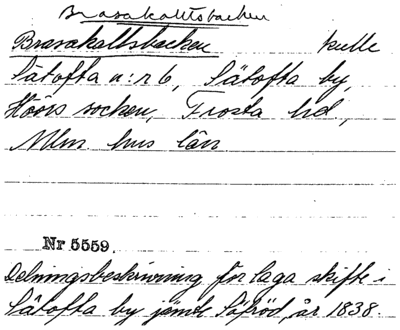 Brasakaltsbacken
Brasakallsbacken kulle
Sätofta n:r 6, Sätofta by,
Höörs socken, Frosta hd,
Mlm. hus län
Nr 5559.
Delningsbeskrivning för laga skifte i
Sätofta by jämte år 1838.